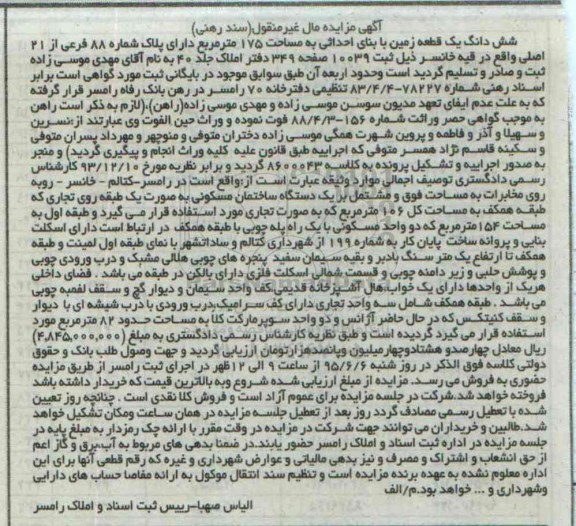 آگهی مزایده مال غیرمنقول(سند رهنی)
شش دانگ یک قطعه زمین با بنای احداثی به مساحت ۱۷۵ مترمربع دارای پلاک شماره ۸۸ فرعی از ۲۱
اصلی واقع در قیه خانسر ذیل ثبت ۱۰۰۳۹ صفحه ۳۴۹ دفتر املاک جلد ۴۰ به نام آقای مهدی موسی زاده
ثبت و صادر و تسلیم گردید است وحدود اربعه آن طبق سوابق موجود در بایگانی ثبت مورد گواهی است برابر
اسناد رهنی شماره ۷۸۲۲۷-۸۳/۴/۴ تنظیمی دفترخانه ۷۰ رامسر در رهن بانک رفاه رامسر قرار گرفته
که به علت عدم ایفای تعهد مدیون سوسن موسی زاده و مهدی موسی زاده(راهن)،(لازم به ذکر است راهن
به موجب گواهی حصر وراثت شماره ۱۵۶-۸۸/۴/۳ فوت نموده و وراث حین الفوت وی عبارتند از:نسرین
و سهیلا و آذر و فاطمه و پروین شهرت همگی موسی زاده دختران متوفی و منوچهر و مهرداد پسران متوفی
و سکینه قاسم نژاد همسر متوفی که اجراییه طبق قانون علیه کلیه وراث انجام و پیگیری گردید) و منجر
به صدور اجراییه و تشکیل پرونده به کلاسه ۸۶۰۰۰۴۳ گردید و برابر نظریه مورخ ۹۳/۱۲/۱۰ کارشناس
رسمی دادگستری توصیف اجمالی موارد وثیقه عبارت است از:واقع است در رامسر-کتالم - خانسر - روبه
روی مخابرات به مساحت فوق و مشتمل بر یک دستگاه ساختمان مسکونی به صورت یک طبقه روی تجاری که
طبقه همکف به مساحت کل ۱۰۶ مترمربع که به صورت تجاری مورد استفاده قرار می گیرد و طبقه اول به
مساحت ۱۵۴مترمربع که دو واحد مسکونی با یک راه پله چوبی با طبقه همکف در ارتباط است دارای اسکلت
بنایی و پروانه ساخت پایان کار به شماره ۱۹۹ از شهرداری کتالم و ساداتشهر با نمای طبقه اول لمینت و طبقه
همکف تا ارتفاع یک متر سنگ بادبر و بقیه سیمان سفید پنجره های چوبی هلالی مشبک و درب ورودی چوبی
و پوشش حلبی و زیر دامنه چوبی و قسمت شمالی اسکلت فلزی دارای بالکن در طبقه می باشد . فضای داخلی
هریک از واحدها دارای یک خواب،هال آشپزخانه قدیمی،کف واحد سیمان و دیوار گچ و سقف لمبه چوبی
می باشد . طبقه همکف شامل سه واحد تجاری دارای کف سرامیک،درب ورودی با درب شیشه ای با دیوار
و سقف کنیتکس که در حال حاضر آژانس و دو واحد سوپرمارکت کلا به مساحت حدود ۸۲ مترمربع مورد
استفاده قرار می گیرد گردیده است و طبق نظریه کارشناس رسمی دادگستری به مبلغ (۴,۸۴۵,۰۰۰,۰۰۰)
ریال معادل چهارصدو هشتادوچهارمیلیون وپانصدهزارتومان ارزیابی گردید و جهت وصول طلب بانک و حقوق
دولتی کلاسه فوق الذکر در روز شنبه ۹۵/۶/۶ از ساعت ۹ الی ۱۲ظهر در اجرای ثبت رامسر از طریق مزایده
حضوری به فروش می رسد. مزایده از مبلغ ارزیابی شده شروع وبه بالاترین قیمت که خریدار داشته باشد
فروخته خواهد شد.شرکت در جلسه مزایده برای عموم آزاد است و فروش کلا نقدی است . چنانچه روز تعیین
شده با تعطیل رسمی مصادف گردد روز بعد از تعطیل جلسه مزایده در همان ساعت ومکان تشکیل خواهد
شد.طالبین و خریداران می توانند جهت شرکت در مزایده در وقت مقرر با ارائه چک رمزدار به مبلغ پایه در
جلسه مزایده در اداره ثبت اسناد و املاک رامسر حضور یابند.در ضمنا بدهی های مربوط به آب،برق و گاز اعم
از حق انشعاب و اشتراک و مصرف و نیز بدهی مالیاتی و عوارض شهرداری و غیره که رقم قطعی آنها برای این
اداره معلوم نشده به عهده برنده مزایده است و تنظیم سند انتقال موکول به ارائه مفاصا حساب های دارایی
وشهرداری و ... خواهد بود.م/الف
الیاس صهبا-رییس ثبت اسناد و املاک رامسر